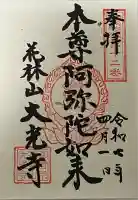 奉拝
令和七年
四月一日
本尊阿弥陀如来
花林山大光寺